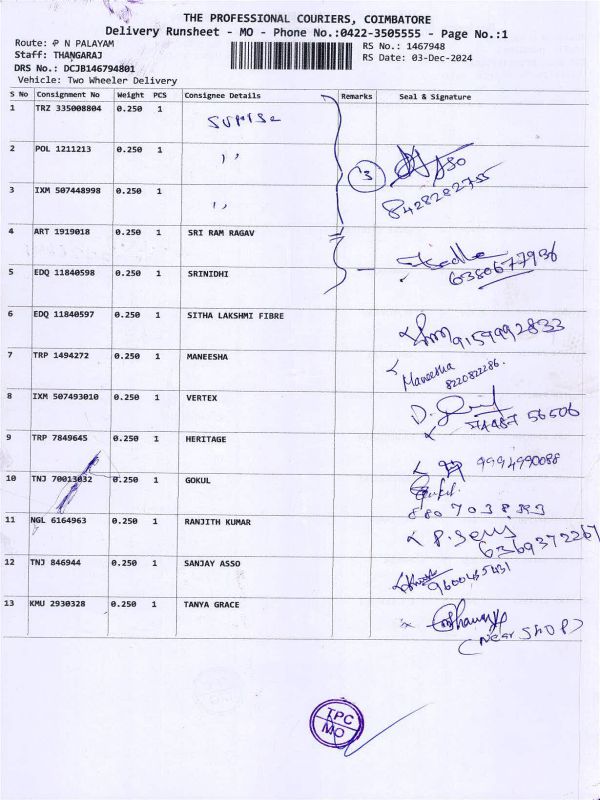 THE PROFESSIONAL COURIERS, COIMBATORE
Delivery Runsheet - MO - Phone No.:0422-3505555 - Page No.:1
Route: P N PALAYAM
Staff: THANGARAJ
DRS No.: DCJB146794801
Vehicle: Two Wheeler Delivery
RS No.: 1467948
RS Date: 03-Dec-2024
S No Consignment No Weight PCS Consignee Details Remarks Seal & Signature
1 TRZ 335008804 0.250 1 Sunrise
2 POL 1211213 0.250 1 ,,
3 IXM 507448998 0.250 1 ,, 3 8428282755
4 ART 1919018 0.250 1 SRI RAM RAGAV
5 EDQ 11840598 0.250 1 SRINIDHI 6380677936
6 EDQ 11840597 0.250 1 SITHA LAKSHMI FIBRE 9159992833
7 TRP 1494272 0.250 1 MANEESHA Maneesha 8220822286.
8 IXM 507493010 0.250 1 VERTEX 74487 56506
9 TRP 7849645 0.250 1 HERITAGE 9994990088
10 TNJ 70013032 0.250 1 GOKUL Gokul.
11 NGL 6164963 0.250 1 RANJITH KUMAR 6369372267
12 TNJ 846944 0.250 1 SANJAY ASSO
13 KMU 2930328 0.250 1 TANYA GRACE
(Near SHOP)
TPC
MO